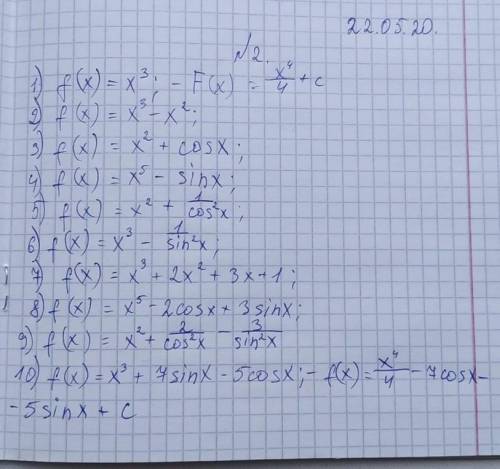 22.05.20.
№2.
1) f(x) = x³; - F(x) = x⁴/4 + c
2) f(x) = x³ - x²;
3) f(x) = x² + cosx;
4) f(x) = x⁵ - sinx;
5) f(x) = x² + 1/cos²x;
6) f(x) = x³ - 1/sin²x;
7) f(x) = x³ + 2x² + 3x + 1;
8) f(x) = x⁵ - 2cosx + 3sinx;
9) f(x) = x² + 2/cos²x - 3/sin²x
10) f(x) = x³ + 7sinx - 5cosx; - f(x) = x⁴/4 - 7cosx -
- 5sinx + c